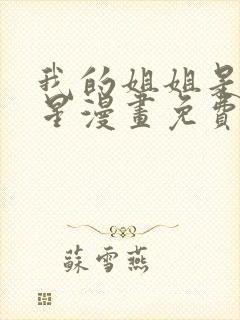 我的姐姐是
星漫畫免費
蘇雪燕